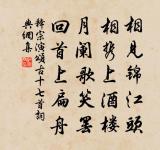 相見錦江頭
相攜上酒樓
月闌歌笑罷
回首上扁舟
釋宗演頌古十七首詞
典網集